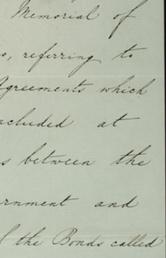 Memorial of
s, referring to
Agreements which
ncluded at
s between the
ernment and
f the Bonds called